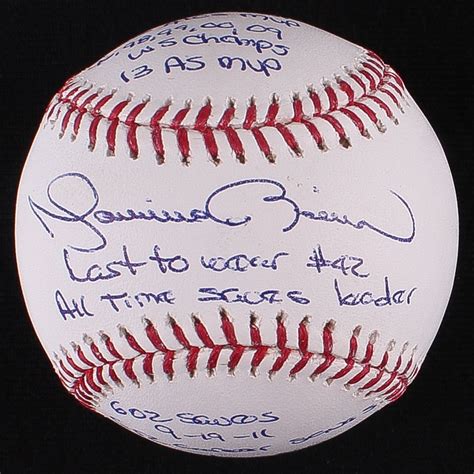 MVP
98, 99, 00, 09
WS Champs
13 AS MVP
Mariano Rivera
Last to wear #42
All Time Saves Leader
602 Saves
9-19-11